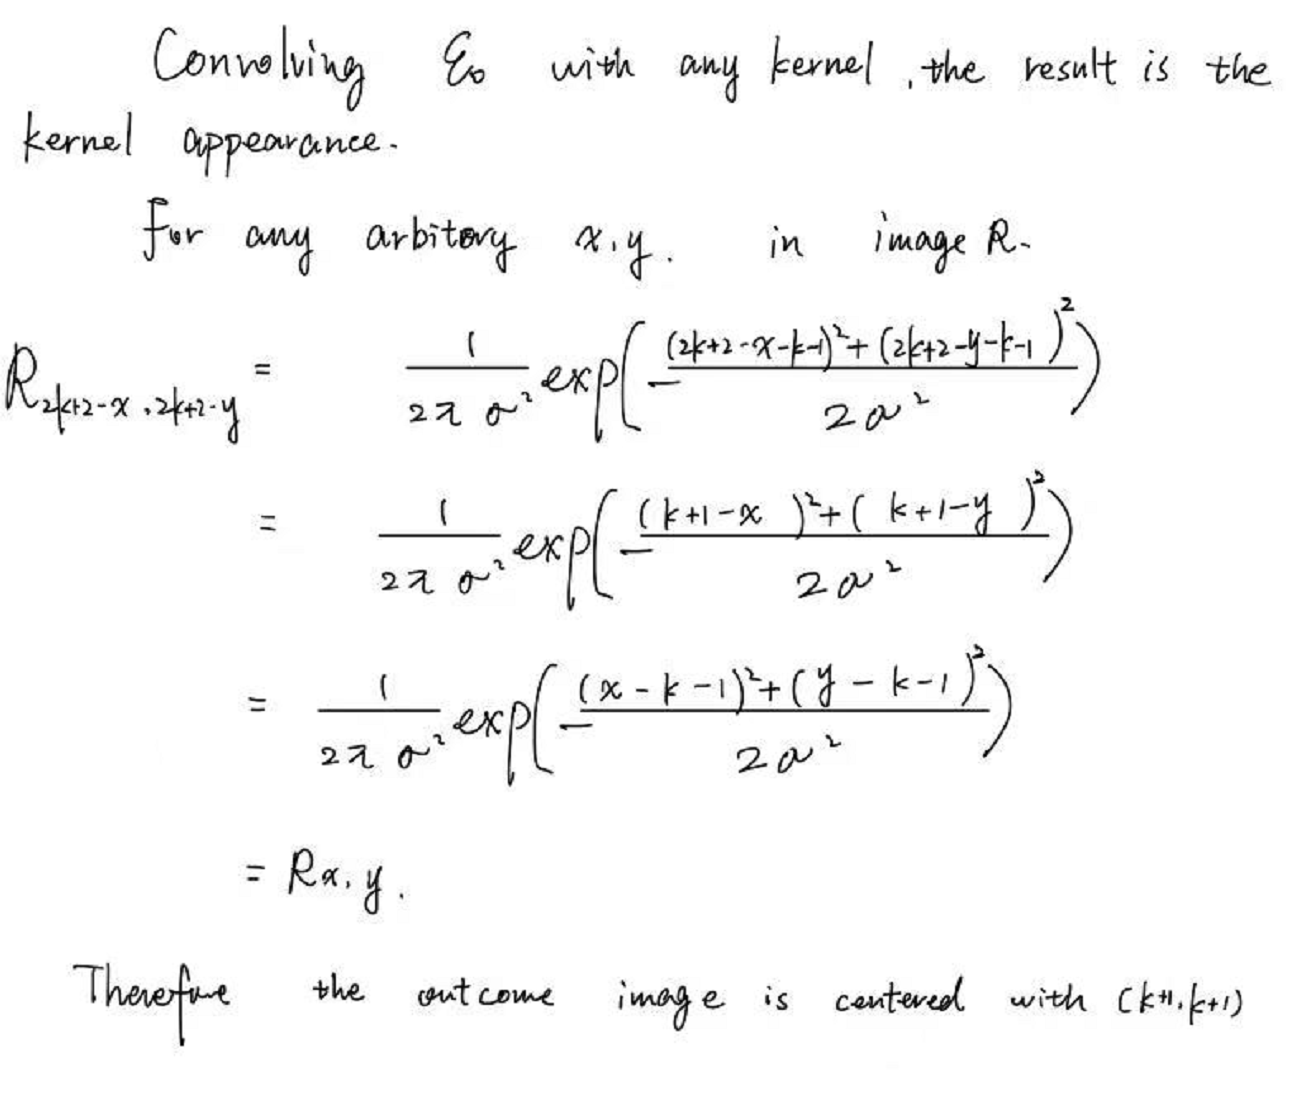 Convolving ℰ₀ with any kernel, the result is the
kernel appearance.
For any arbitory x, y. in image R.
R_{2k+2-x, 2k+2-y} = \frac{1}{2π σ²} exp(-\frac{(2k+2-x-k-1)²+(2k+2-y-k-1)²}{2σ²})
= \frac{1}{2π σ²} exp(-\frac{(k+1-x)²+(k+1-y)²}{2σ²})
= \frac{1}{2π σ²} exp(-\frac{(x-k-1)²+(y-k-1)²}{2σ²})
= R_{x, y}.
Therefore the outcome image is centered with (k+1, k+1)